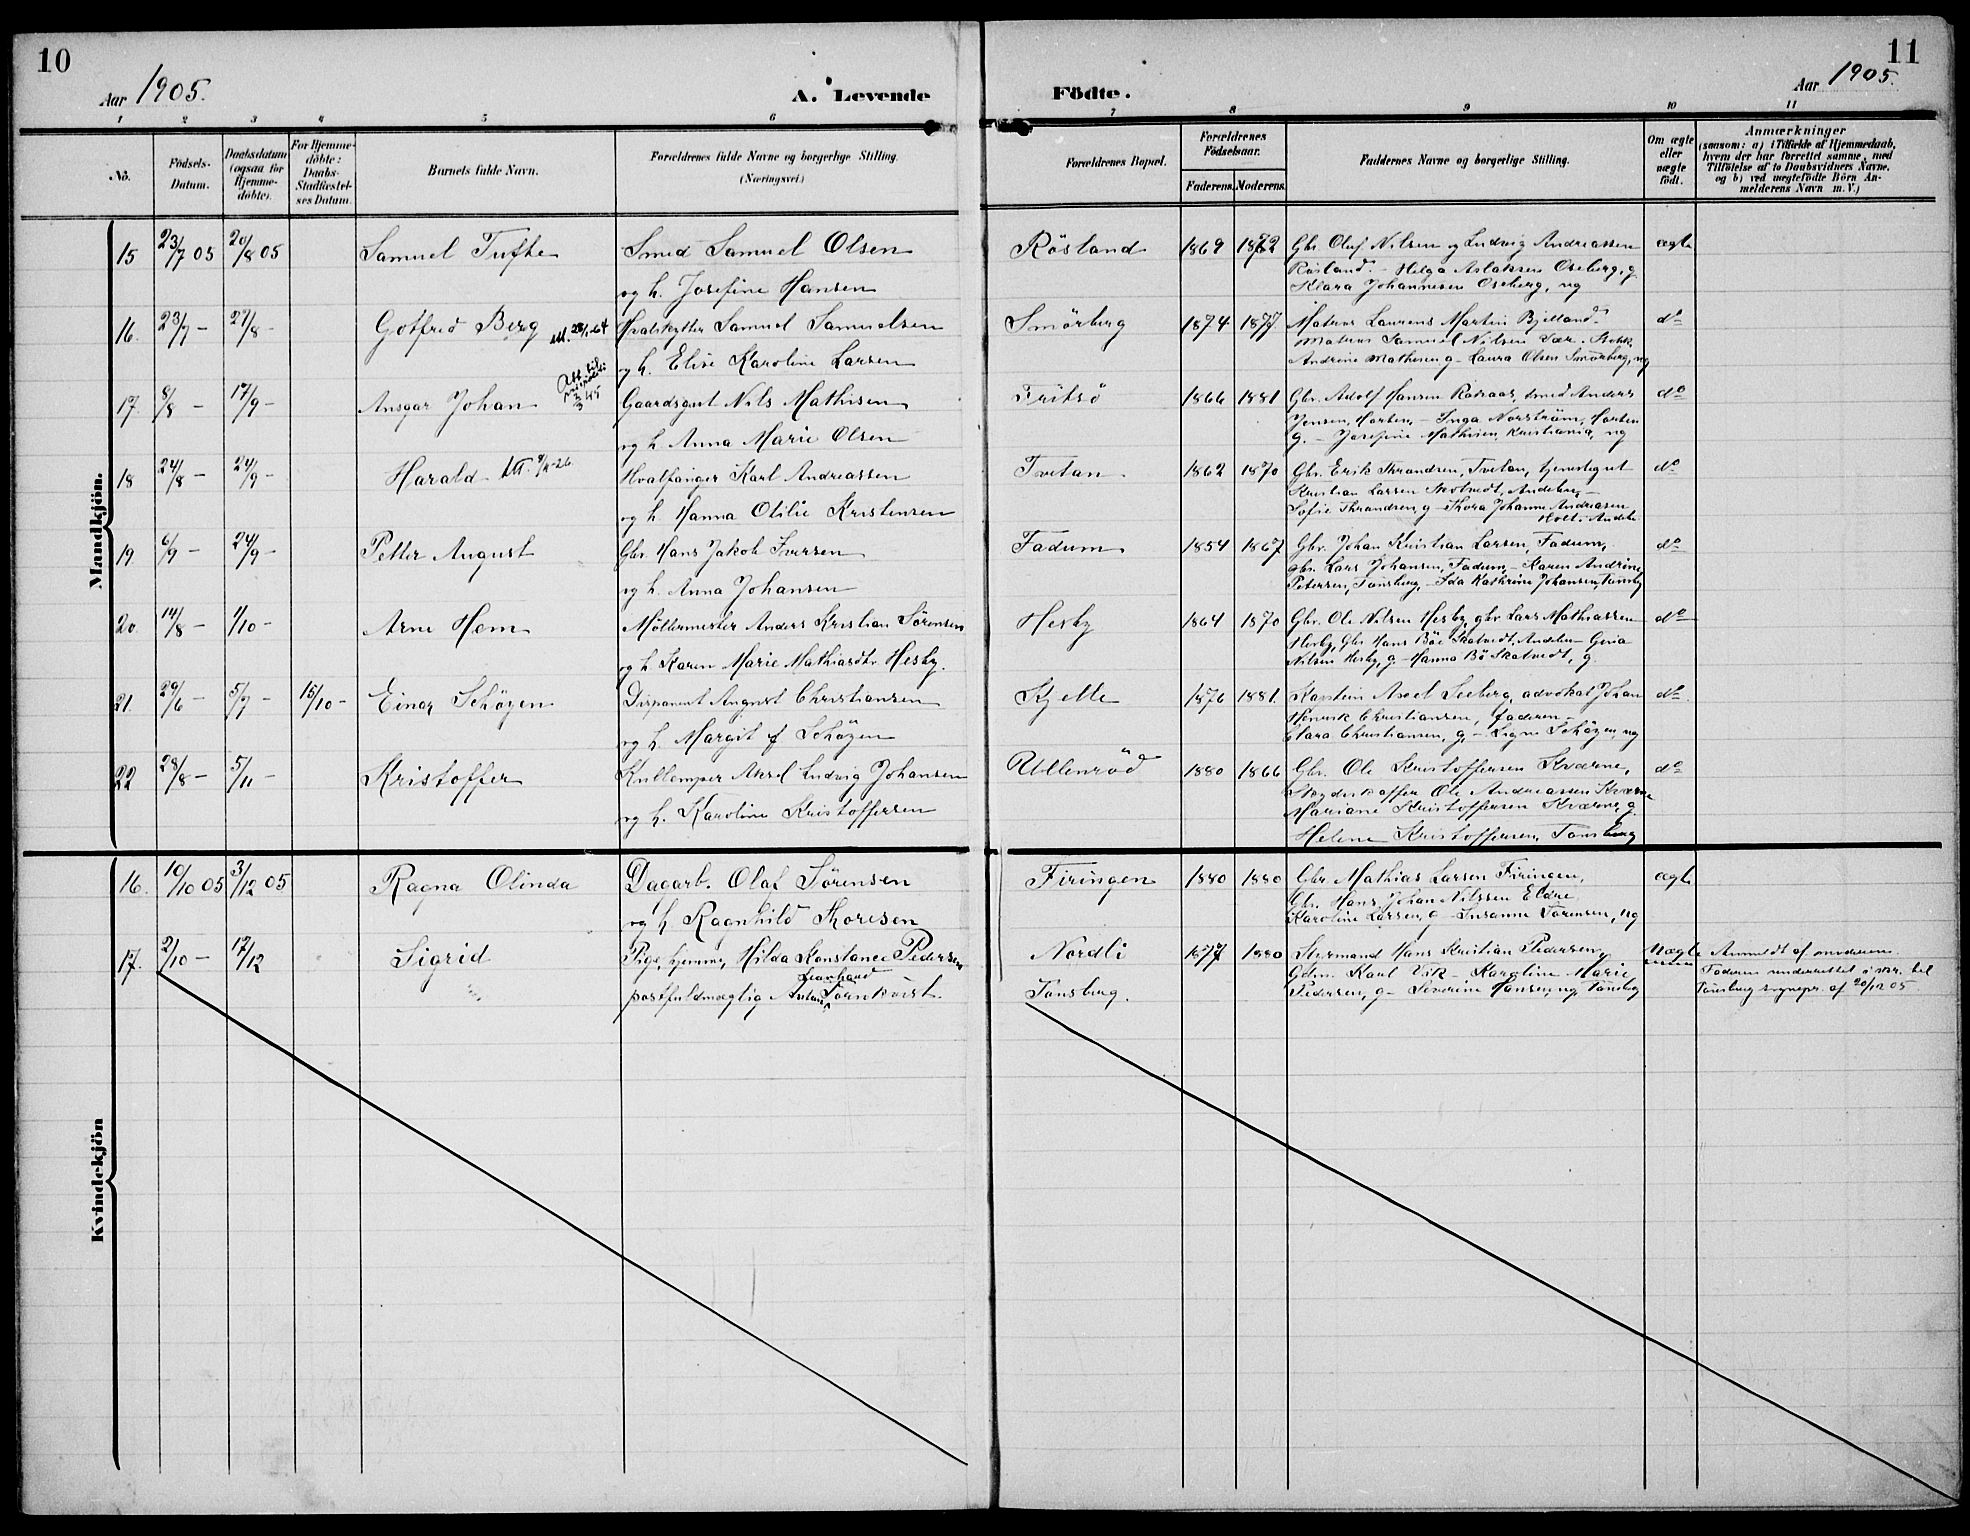 10
Aar 1905.
A. Levende
Födte.
11
Aar 1905.
1 2 3 4 5 6 7 8 9 10 11
No.
Födsels-Datum.
Daabsdatum (ogsaa for Hjemmedöbte).
For Hjemmedöbte: Daabs-Stadfæstelses Datum.
Barnets fulde Navn.
Forældrenes fulde Navne og borgerlige Stilling. (Næringsvei.)
Forældrenes Bopæl.
Forældrenes Födselsaar.
Faderens. Moderens.
Faddernes Navne og borgerlige Stilling.
Om ægte eller uægte födt.
Anmærkninger
(saasom: a) i Tilfælde af Hjemmedaab,
hvem der har forrettet samme, med
Tilföielse af to Daabsvidners Navne,
og b) ved uægtefödte Börn An-
melderens Navn m. V.)
Mandkjön.
15 23/7 05 20/8 05 Samuel Tufte Smed Samuel Olsen Rösland 1869 1872 Gbr. Oluf Nilsen og Ludvig Andreassen ægte
og h. Josefine Hansen Rösland. - Helga Aslaksen Oseberg, g.
Klara Johannesen Oseberg, ug
16. 23/7 - 27/8 - Gotfred Berg Hvalskytter Samuel Samuelsen Smörberg 1874 1877 Matros Laurens Martin Bjelland do
Matros Samuel Nilsen
og h. Elise Karoline Larsen Andrine Mathisen g - Laura Olsen Smörberg, ug
17. 8/8 - 17/9 - Ansgar Johan Gaardsgut Nils Mathisen Fritsö 1866 1881 Gbr. Adolf Hansen smed Anders do
Jensen, Horten, - Inga Norström, Horten
og h. Anna Marie Olsen g. - Josefine Mathisen, Kristiania, ug
18 24/8 - 24/9 - Harald Hvalfanger Karl Andreassen Tvetan 1862 1870 Gbr. Erik Thrandsen, Tvetan, tjenestgut do
Kristian Larsen Skotvedt, Andebu, -
og h. Hanna Otilie Kristensen Sofie Thrandsen, g - Thora Johanne Andreasen
Holt, Andebu
19 6/9 - 24/9 - Petter August Gbr. Hans Jakob Iversen Fadum 1854 1867 Gbr. Johan Kristian Larsen, Fadum, do
gbr. Lars Johansen, Fadum, - Karen Andrine
og h. Anna Johansen Petersen, Tönsberg, - Ida Kathrine Johansen, Tönsbg
20. 14/8 - 1/10 - Arne Hem Möllermester Anders Kristian Sørensen Hesby 1864 1870 Gbr. Ole Nilsen Hesby, gbr Lars Mathiassen do
Hesby, Gbr Hans Böe Skotvedt, Andebu -
og h. Karen Marie Mathiasdtr. Hesby. Nilsen Hesby, g - Hanna Bö Skotvedt, g
21. 29/6 - 5/9 - 15/10 - Einar Schöyen Disponent August Christiansen Kjelle 1876 1881. Kaptein Axel Seeberg, advokat Johan do
Henrik Christiansen, faderen -
og h. Margit f Schöyen Clara Christiansen, g, - Signe Schöyen, ug
22 28/8 - 5/11 - Kristoffer Kullemper Aksel Ludvig Johansen Ullenröd 1880 1866 Gbr. Ole Kristoffersen Kværne, do
Ole Andreassen Kværne
og h. Karoline Kristoffersen Mariane Kristoffersen Kværne, g.
Helene Kristoffersen, Tönsberg
Kvindekjön
16. 10/10 05 3/12 05 Ragna Olinda Dagarb. Olaf Sørensen Firingen 1880 1880 Gbr Mathias Larsen Firingen, ægte
Gbr. Hans Johan Nilssen Eldre,
og h Ragnhild Thoresen Karoline Larsen, g - Susanne Sørensen, ug
17. 2/10 - 17/12 Sigrid Pige, hjemme, Hilda Konstance Pedersen Nordli 1877 1880 Styrmand Hans Kristian Pedersen, Uægte Anmeldt af moderen.
Leonhard Gdm. Karl Vik - Karoline Marie Faderen underrettet i skr. til
postfuldmægtig Anton Törnkvist. Tönsberg. Pedersen, g - Severine Hansen, ug, Tönsbg Tönsberg sognepr. af 20/12 05.